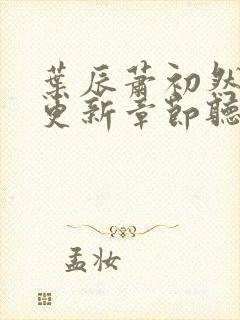 葉辰蕭初然
更新章節聽
孟妝